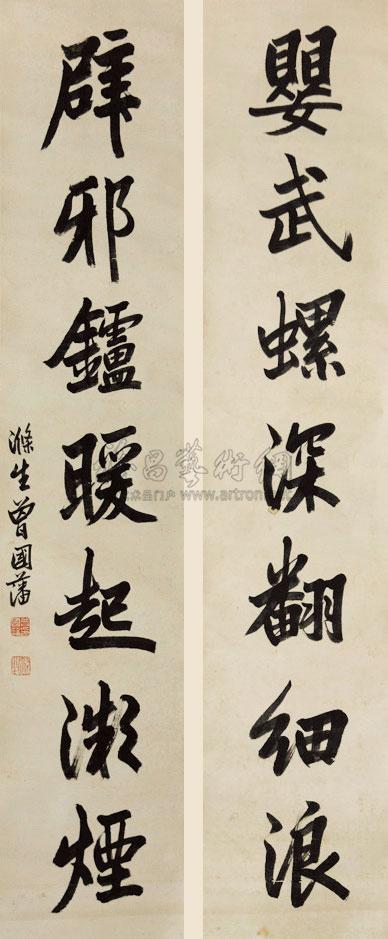 嬰武螺深翻細浪
辟邪鑪暖起微煙
滌生曾國藩
昌藝術網
www.artron